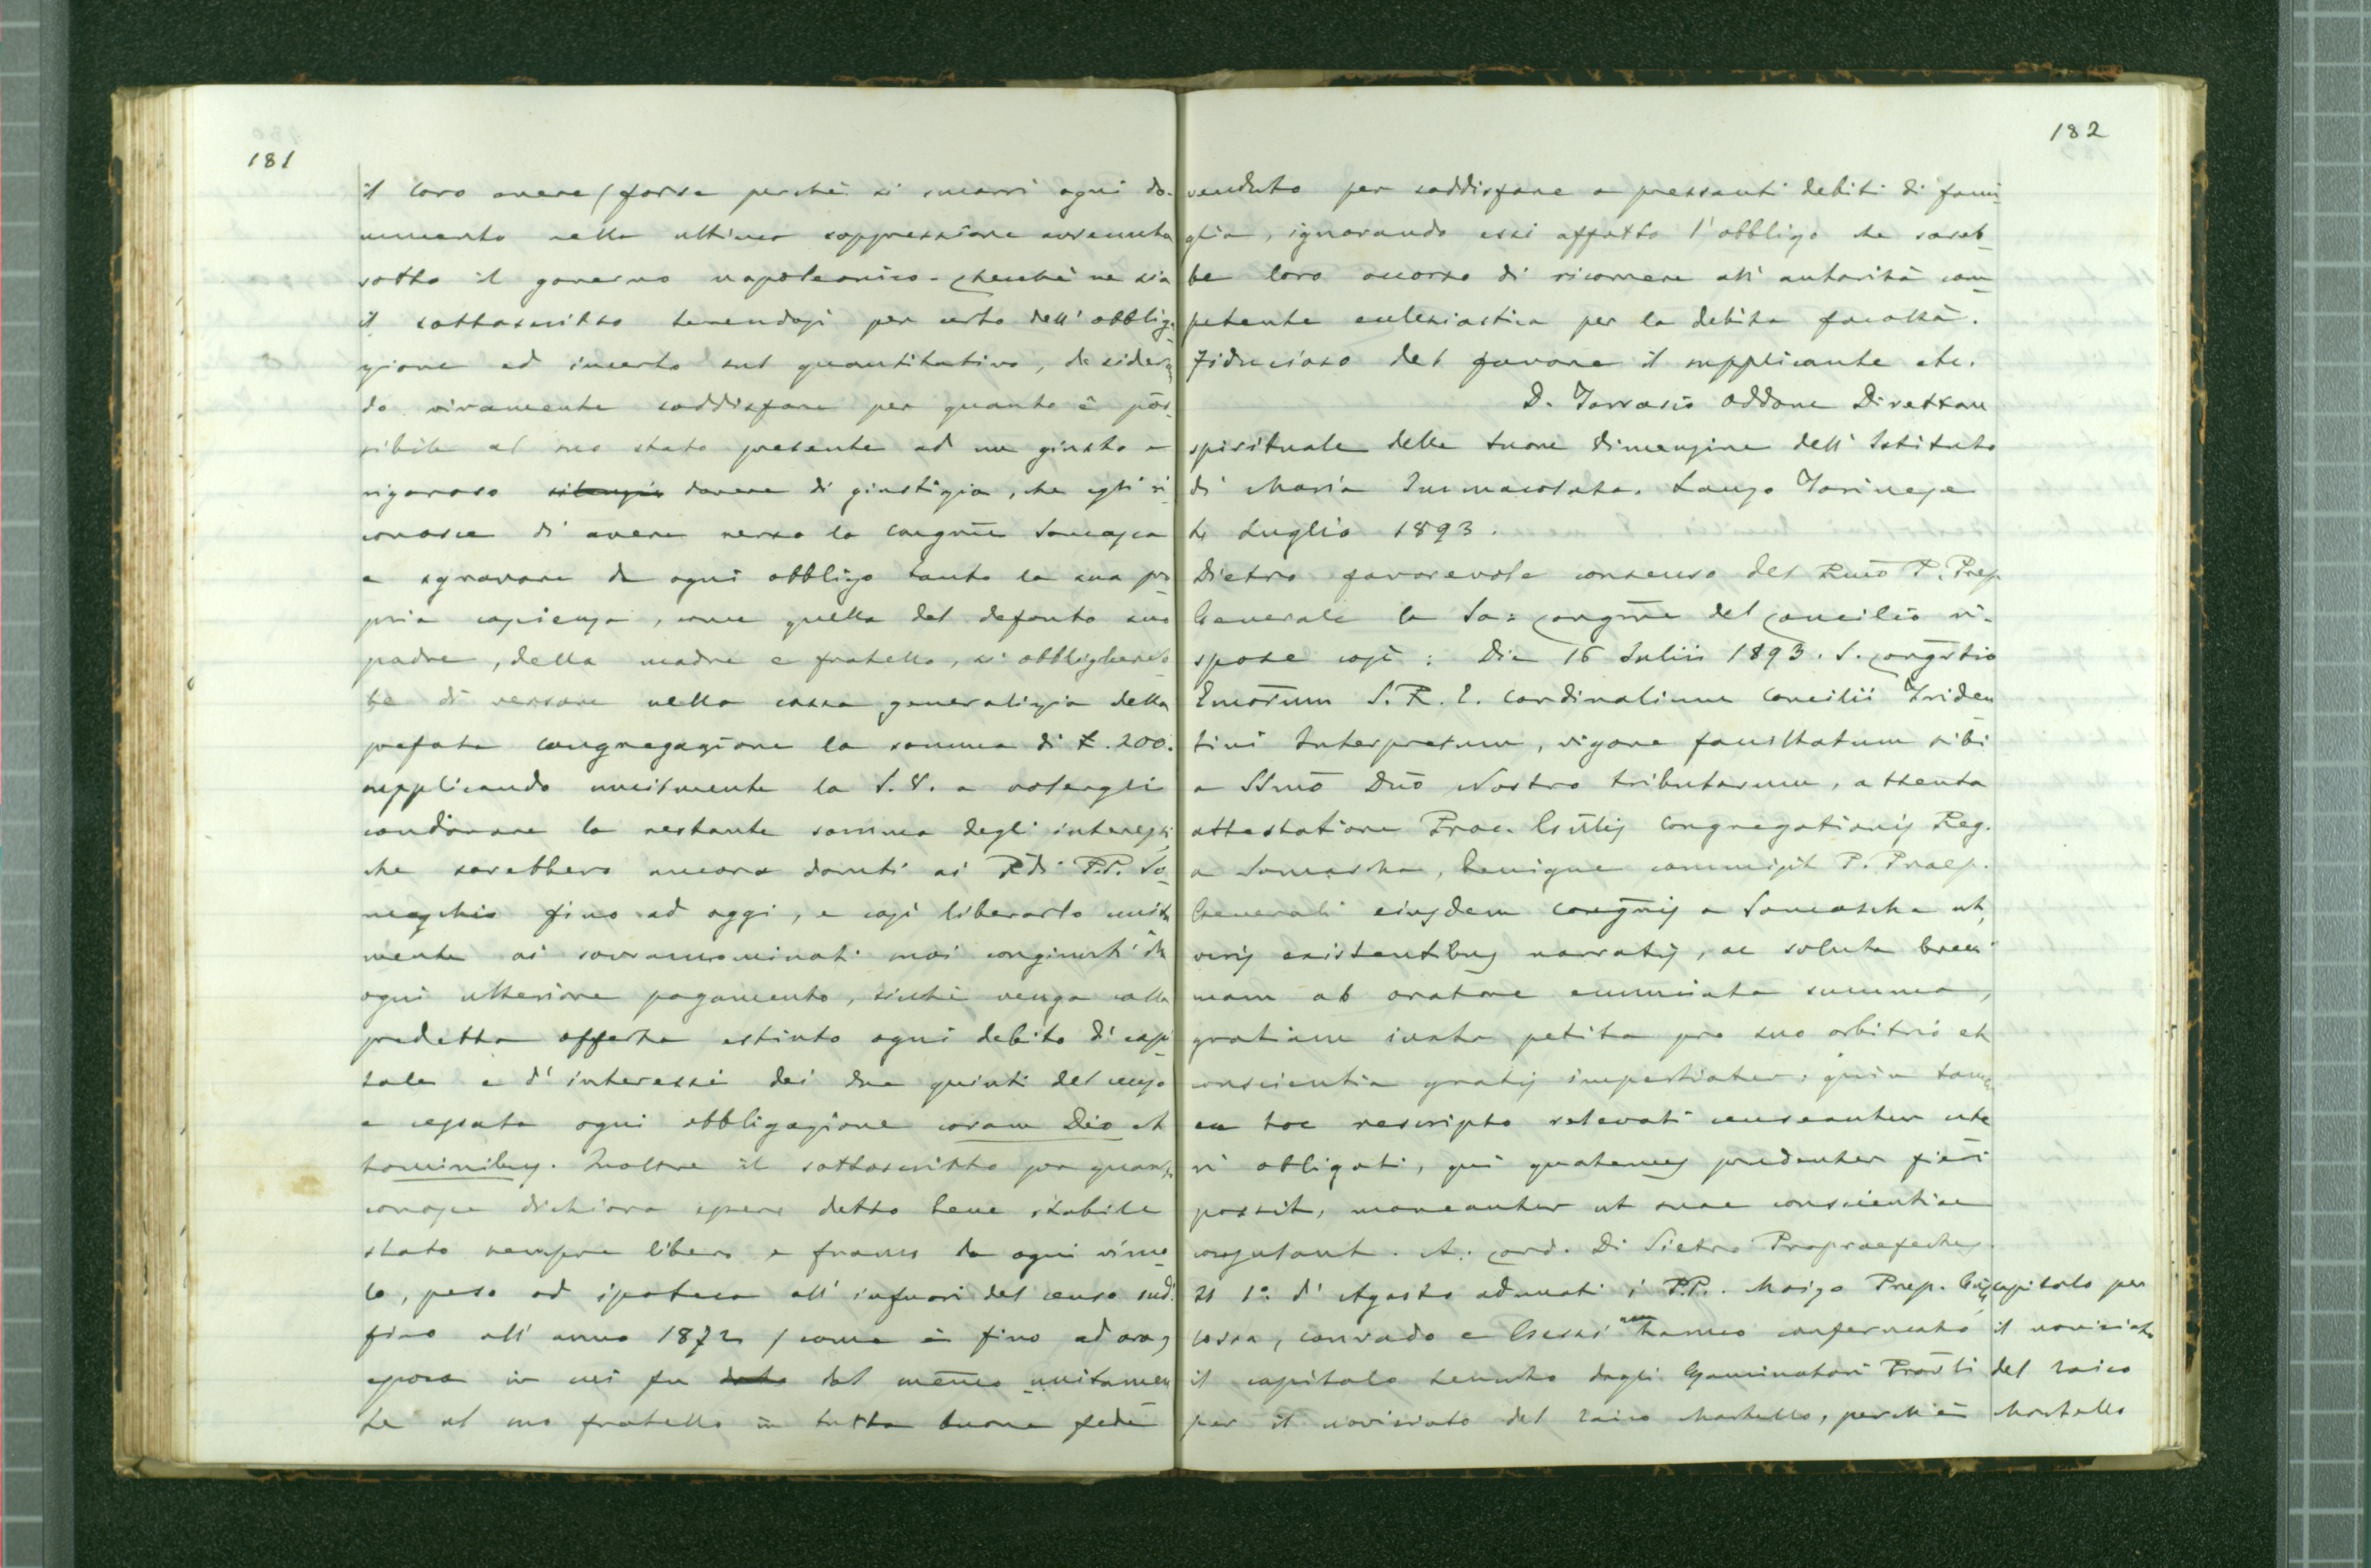 181
il loro avere (forse perchè si smarrì ogni do-
cumento nella ultima soppressione avvenuta
sotto il governo napoleonico. Perchè ne sia
il sottoscritto tenendosi per certo dell' obbliga
zione ed incerto sul quantitativo, desideran
do vivamente soddisfare per quanto è pos-
sibile al suo stato presente ad un giusto e
rigoroso dovere di giustizia, che egli ri
conosce di avere verso la Congrne Somasca
e sgravare da ogni obbligo tanto la sua pro
pria coscienza, come quella del defonto suo
padre, della madre e fratello, si obblighereb
be di versare nella cassa generalizia della
prefata Congregazione la somma di £. 200.
supplicando umilmente la S.V. a volergli
condonare la restante somma degli interessi
che sarebbero ancora dovuti ai Rdi P.P. So
maschi fino ad oggi, e così liberarlo unita
mente ai sovranominati suoi congiunti da
ogni ulteriore pagamento, sicchè venga colla
predetta offerta estinto ogni debito di capi
tale e d' interessi dei due quinti del censo
e cessata ogni obbligazione coram Deo et
hominibus. Inoltre il sottoscritto per quanto
conosce dichiara essere detto bene stabile
stato sempre libero e franco da ogni vinco
lo, peso ed ipoteca all' infuori del censo sud.
fino all' anno 1872 (come è fino ad ora)
epoca in cui fu dal unitamen
te al suo fratello in tutta buona fede
182
venduto per soddisfare a pressanti debiti di fami
glia, ignorando essi affatto l' obbligo che sareb
be loro occorso di ricorrere all' autorità com
petente ecclesiastica per la debita facoltà.
Fiducioso del favore il supplicante etc.
D. Addone Direttore
spirituale delle Suore dell' Istituto
di Maria Immacolata. Lanzo Torinese
4 Luglio 1893.
Dietro favorevole consenso del Rmo P. Prep.
Generale la Sa: Congrne del Concilio ri-
spose così: Die 15 Julii 1893. S. Congrtio
Emorum S. R. E. Cardinalium Concilii Triden
tini Interpretum, vigore facultatum sibi
a SSmo Dno Nostro tributarum, attenta
attestatione Proc. Gnlis Congregationis Reg.
a Somascha, benigne commisit P. Praep.
Generali eiusdem Congnis a Somascha ut,
veris existentibus narratis, ac soluta
ab oratore enunciata summa,
gratiam iuxta petita pro suo arbitrio et
conscientia gratis impertiatur; quin tamen
ex hoc rescripto relevati censeantur
si obligati, qui quatenus prudenter fieri
possit, moneantur ut suae conscientiae
consulant. A. Card. Di Pietro Propraefectus
Il 1°. d' Agosto adunati i P.P. Moizo Prep. Gn,
Cossa, Conrado e Gessi non hanno confermato
il capitolo tenuto dagli Esaminatori Provli
per il noviziato del laico Martello, perchè
capitolo per
il noviziato
del laico
Martello